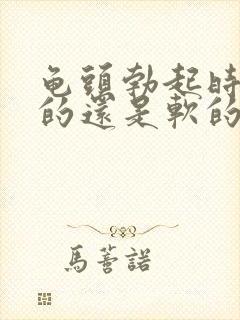 龟頭勃起時
的還是軟的
馬蓍諾